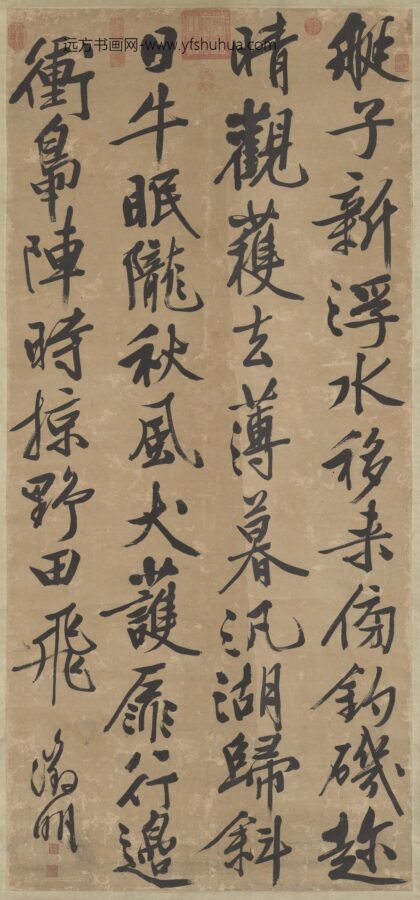 远方书画网-www.yfshuhua.com
艇子新浮水移来傍釣磯趂
晴觀穫去薄暮汎湖歸斜
日牛眠隴秋風犬護扉行邊
衝鳧陣時掠野田飛
徵明